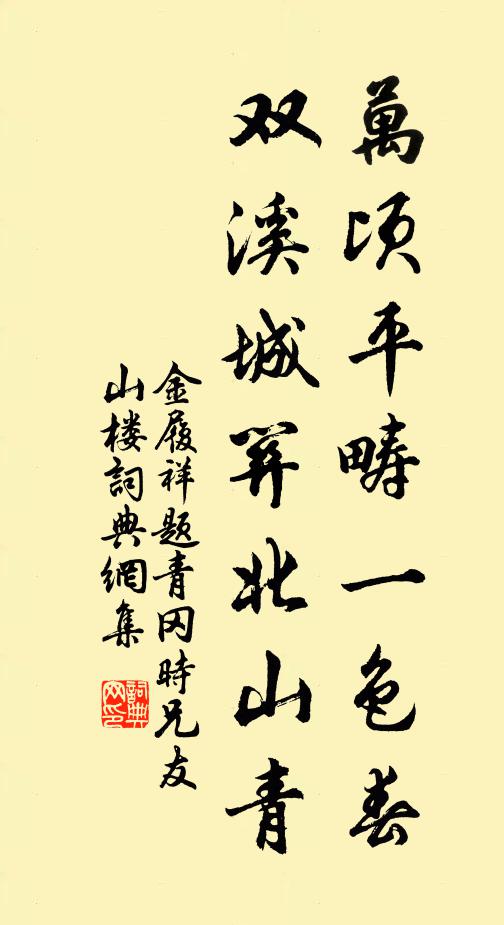 萬頃平疇一色春
双溪城罫北山青
金履祥題青冈時兄友
山楼詞典網集
詞典网印